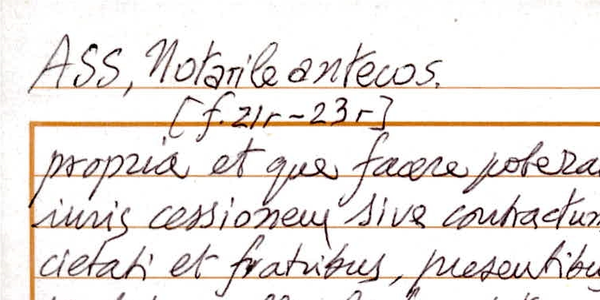 ASS, Notarile antecos.
[f. 21r - 23r]
propria et que facere potera
iuris cessionem sive contractum
cietati et fratribus, presentibu